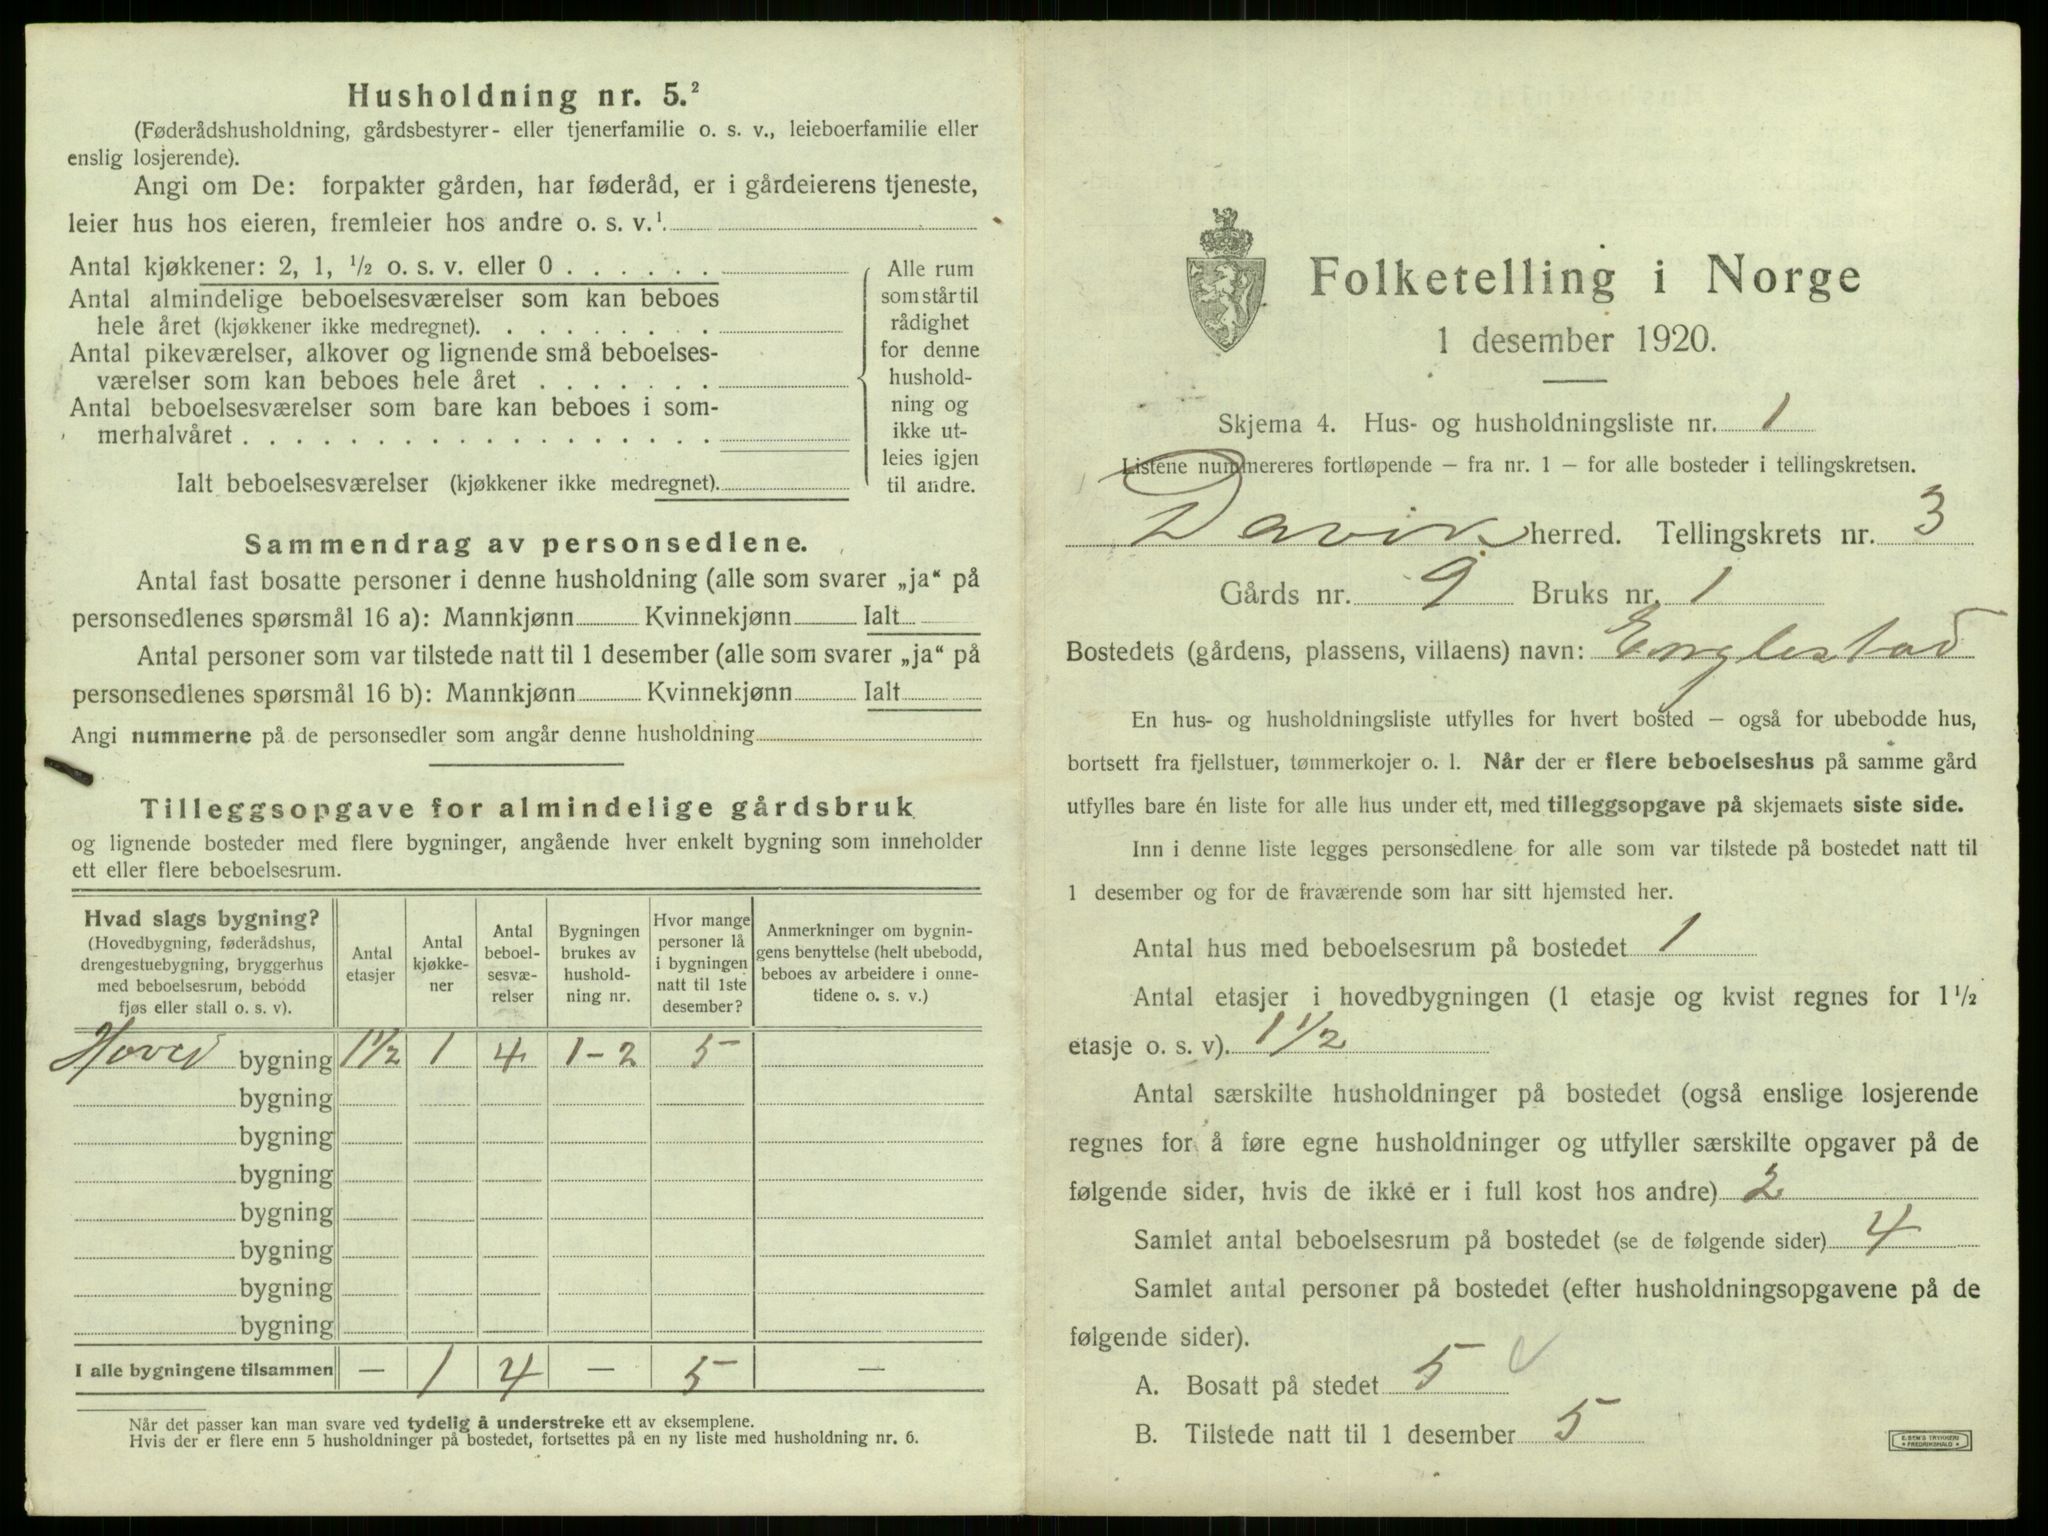 Husholdning nr. 5.²
(Føderådshusholdning, gårdsbestyrer- eller tjenerfamilie o. s. v., leieboerfamilie eller
enslig losjerende).
Angi om De: forpakter gården, har føderåd, er i gårdeierens tjeneste,
leier hus hos eieren, fremleier hos andre o. s. v.¹
Antal kjøkkener: 2, 1, ½ o. s. v. eller 0 . . . . . .
Antal almindelige beboelsesværelser som kan beboes
hele året (kjøkkener ikke medregnet). . . . . . . . .
Antal pikeværelser, alkover og lignende små beboelses-
værelser som kan beboes hele året . . . . . . .
Antal beboelsesværelser som bare kan beboes i som-
merhalvåret . . . . . . . . . . . . . . . . . .
Ialt beboelsesværelser (kjøkkener ikke medregnet).
Alle rum
som står til
rådighet
for denne
hushold-
ning og
ikke ut-
leies igjen
til andre.
Sammendrag av personsedlene.
Antal fast bosatte personer i denne husholdning (alle som svarer „ja“ på
personsedlenes spørsmål 16 a): Mannkjønn Kvinnekjønn Ialt
Antal personer som var tilstede natt til 1 desember (alle som svarer „ja“ på
personsedlenes spørsmål 16 b): Mannkjønn Kvinnekjønn Ialt
Angi nummerne på de personsedler som angår denne husholdning
Tilleggsopgave for almindelige gårdsbruk
og lignende bosteder med flere bygninger, angående hver enkelt bygning som inneholder
ett eller flere beboelsesrum.
Hvad slags bygning?
(Hovedbygning, føderådshus,
drengestuebygning, bryggerhus
med beboelsesrum, bebodd
fjøs eller stall o. s. v).
Antal
etasjer
Antal
kjøkke-
ner
Antal
beboel-
sesvæ-
relser
Bygningen
brukes av
hushold-
ning nr.
Hvor mange
personer lå
i bygningen
natt til 1ste
desember?
Anmerkninger om bygnin-
gens benyttelse (helt ubebodd,
beboes av arbeidere i onne-
tidene o. s. v.)
Hoved bygning 1½ 1 4 1-2 5
bygning
bygning
bygning
bygning
bygning
bygning
bygning
I alle bygningene tilsammen — 1 4 — 5 —
Når det passer kan man svare ved tydelig å understreke ett av eksemplene.
Hvis der er flere enn 5 husholdninger på bostedet, fortsettes på en ny liste med husholdning nr. 6.
Folketelling i Norge
1 desember 1920.
Skjema 4. Hus- og husholdningsliste nr. 1
Listene nummereres fortløpende – fra nr. 1 – for alle bosteder i tellingskretsen.
Davik herred. Tellingskrets nr. 3
Gårds nr. 9 Bruks nr. 1
Bostedets (gårdens, plassens, villaens) navn: Englestad
En hus- og husholdningsliste utfylles for hvert bosted – også for ubebodde hus,
bortsett fra fjellstuer, tømmerkojer o. l. Når der er flere beboelseshus på samme gård
utfylles bare én liste for alle hus under ett, med tilleggsopgave på skjemaets siste side.
Inn i denne liste legges personsedlene for alle som var tilstede på bostedet natt til
1 desember og for de fraværende som har sitt hjemsted her.
Antal hus med beboelsesrum på bostedet 1
Antal etasjer i hovedbygningen (1 etasje og kvist regnes for 1½
etasje o. s. v). 1½
Antal særskilte husholdninger på bostedet (også enslige losjerende
regnes for å føre egne husholdninger og utfyller særskilte opgaver på de
følgende sider, hvis de ikke er i full kost hos andre) 2
Samlet antal beboelsesrum på bostedet (se de følgende sider) 4
Samlet antal personer på bostedet (efter husholdningsopgavene på de
følgende sider).
A. Bosatt på stedet 5
B. Tilstede natt til 1 desember 5
E. SEM'S TRYKKERI
FREDRIKSHALD